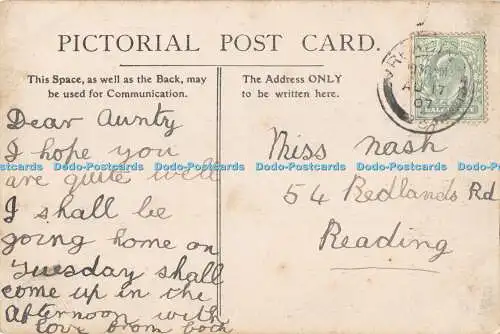 PICTORIAL POST CARD.
This Space, as well as the Back, may
be used for Communication.
The Address ONLY
to be written here.
AU 17
07
Dear Aunty
I hope you
are quite well
I shall be
going home on
Tuesday shall
come up in the
Afternoon with
love from both
Miss Nash
54 Redlands Rd
Reading
Dodo-Postcards Dodo-Postcards Dodo-Postcards Dodo-Postcards Dodo-Postcards